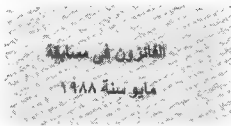 الفائزون في مسابقة
مايو سنة ١٩٨٨